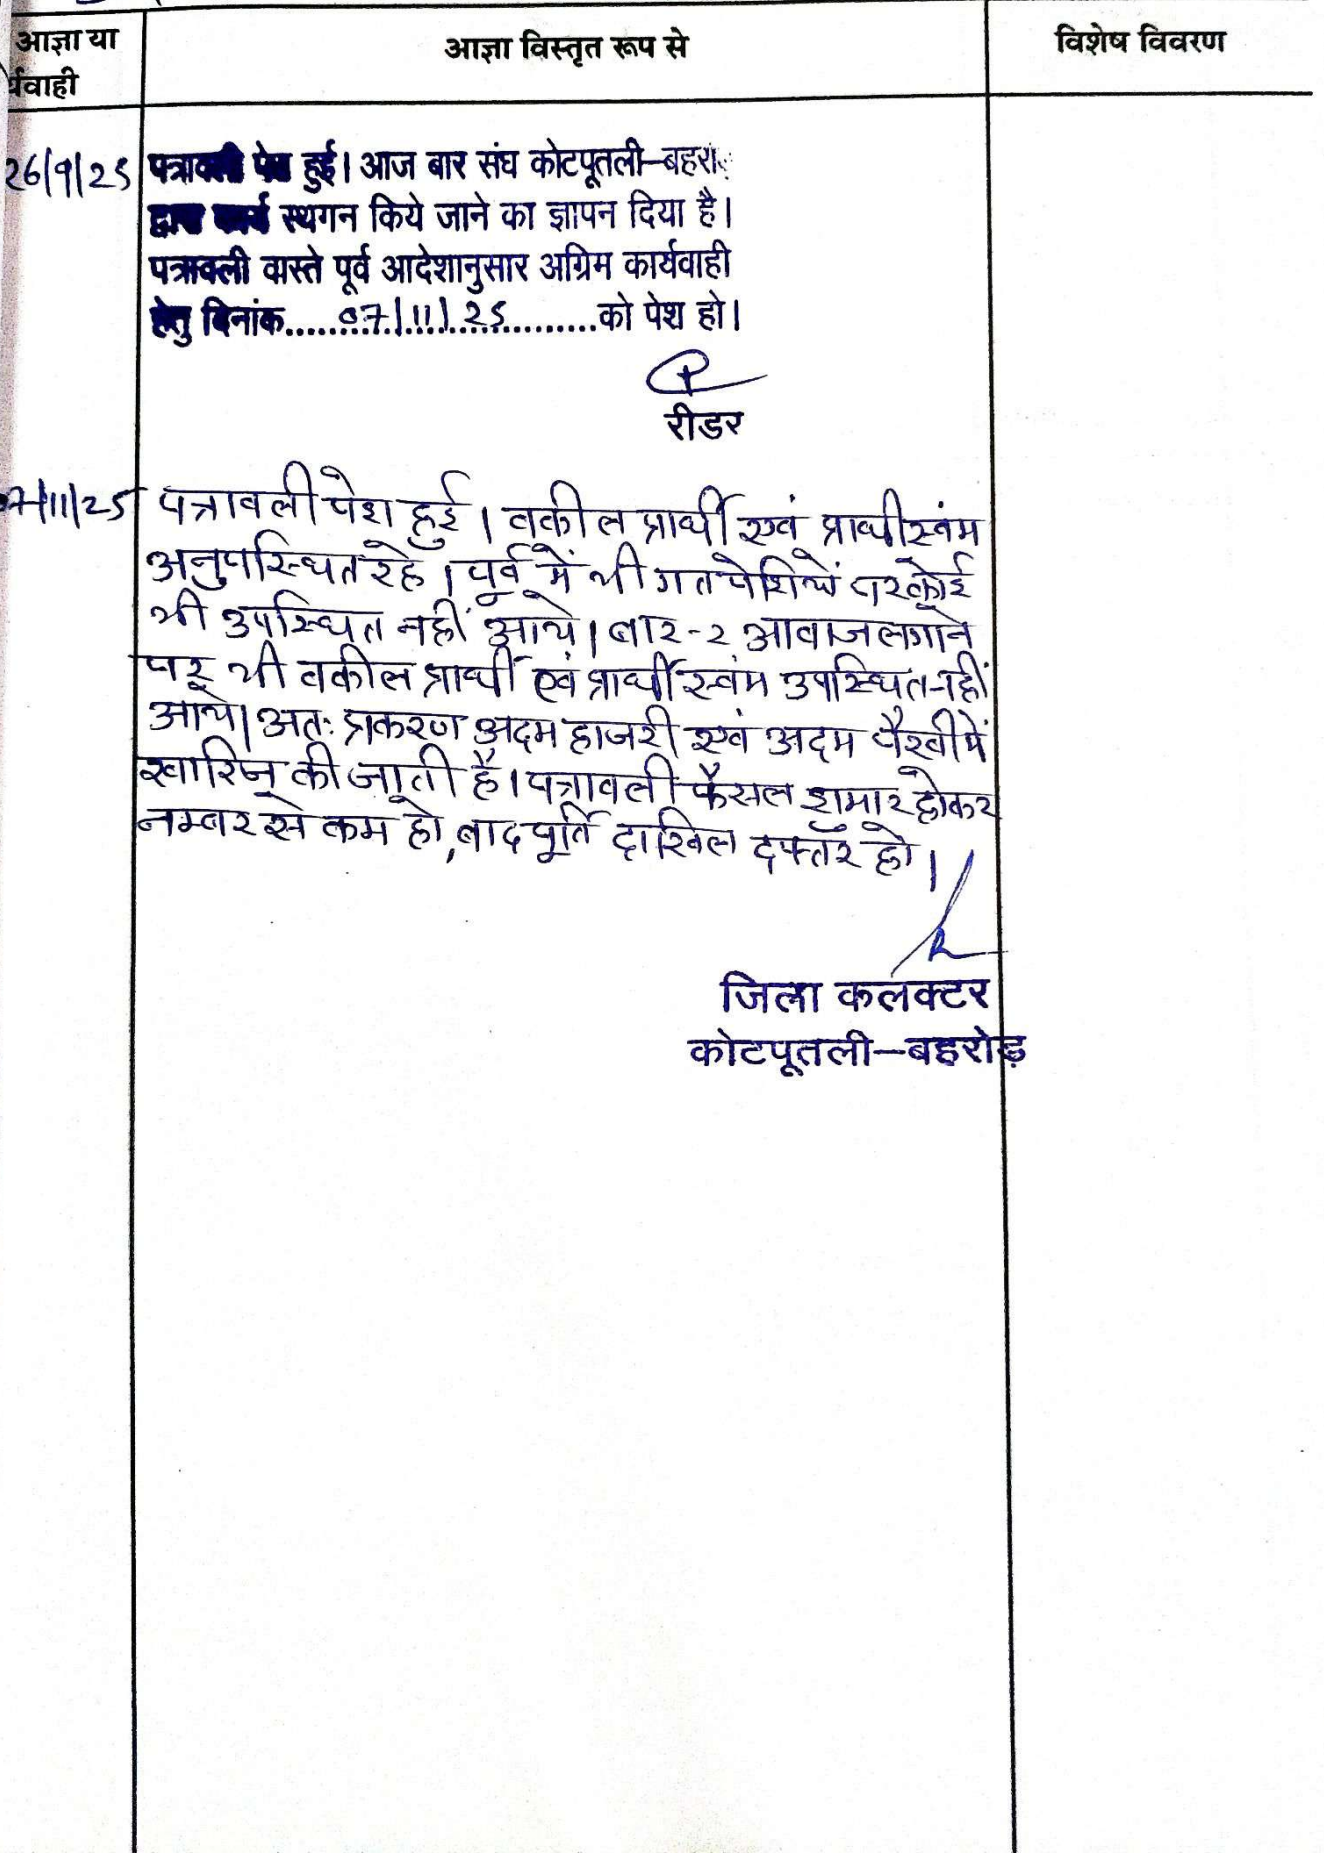 आज्ञा या
र्यवाही
आज्ञा विस्तृत रूप से
विशेष विवरण
26/9/25 पत्रावली पेश हुई। आज बार संघ कोटपूतली–बहरो
द्वारा कार्य स्थगन किये जाने का ज्ञापन दिया है।
पत्रावली वास्ते पूर्व आदेशानुसार अग्रिम कार्यवाही
हेतु दिनांक......07/11/25..........को पेश हो।
रीडर
07/11/25 पत्रावली पेश हुई। वकील प्रार्थी एवं प्रार्थी स्वंम
अनुपस्थित रहे। पूर्व में भी गत पेशियों पर कोई
भी उपस्थित नहीं आये। बार-२ आवाज लगाने
पर भी वकील प्रार्थी एवं प्रार्थी स्वंम उपस्थित नहीं
आये। अतः प्रकरण अदम हाजरी एवं अदम पैरवी में
खारिज की जाती है। पत्रावली फैसल शुमार होकर
नम्बर से कम हो, बाद पूर्ति दाखिल दफ्तर हो।
जिला कलक्टर
कोटपूतली–बहरोड़